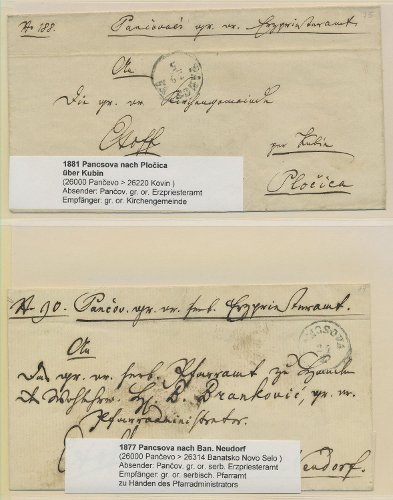 № 188. Pančovaer gr. or. Erzpriesteramt
An
Die gr. or. Kirchengemeinde
per Kubin
Pločica
1881 Pancsova nach Pločica
über Kubin
(26000 Pančevo > 26220 Kovin )
Absender: Pančov. gr. or. Erzpriesteramt
Empfänger: gr. or. Kirchengemeinde
№ 90. Pančov. gr. or. serb. Erzpriesteramt.
An
Das gr. or. serb. Pfarramt zu Handen
D. Branković, gr. or.
Pfarradministrator.
Neudorf.
1877 Pancsova nach Ban. Neudorf
(26000 Pančevo > 26314 Banatsko Novo Selo )
Absender: Pančov. gr. or. serb. Erzpriesteramt
Empfänger: gr. or. serbisch. Pfarramt
zu Händen des Pfarradministrators